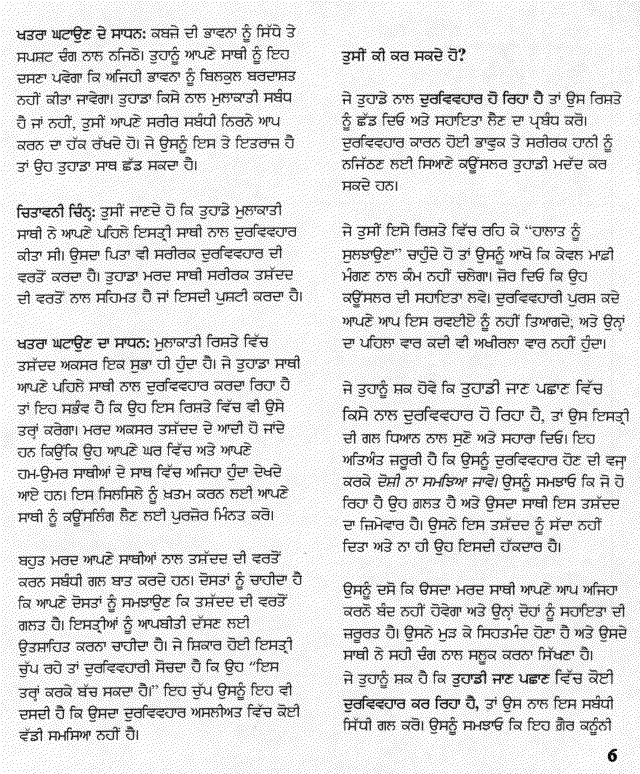 ਖਤਰਾ ਘਟਾਉਣ ਦੇ ਸਾਧਨ: ਕਬਜੇ ਦੀ ਭਾਵਨਾ ਨੂੰ ਸਿੱਧੇ ਤੇ
ਸਪਸ਼ਟ ਢੰਗ ਨਾਲ ਨਜਿਠੋ। ਤੁਹਾਨੂੰ ਆਪਣੇ ਸਾਥੀ ਨੂੰ ਇਹ
ਦਸਣਾ ਪਵੇਗਾ ਕਿ ਅਜਿਹੀ ਭਾਵਨਾ ਨੂੰ ਬਿਲਕੁਲ ਬਰਦਾਸ਼ਤ
ਨਹੀਂ ਕੀਤਾ ਜਾਵੇਗਾ। ਤੁਹਾਡਾ ਕਿਸੇ ਨਾਲ ਮੁਲਾਕਾਤੀ ਸਬੰਧ
ਹੈ ਜਾਂ ਨਹੀਂ, ਤੁਸੀ ਆਪਣੇ ਸਰੀਰ ਸਬੰਧੀ ਨਿਰਨੇ ਆਪ
ਕਰਨ ਦਾ ਹੱਕ ਰੱਖਦੇ ਹੋ। ਜੇ ਉਸਨੂੰ ਇਸ ਤੇ ਇਤਰਾਜ ਹੈ
ਤਾਂ ਉਹ ਤੁਹਾਡਾ ਸਾਥ ਛੱਡ ਸਕਦਾ ਹੈ।
ਚਿਤਾਵਨੀ ਚਿੰਨ੍ਹ: ਤੁਸੀਂ ਜਾਣਦੇ ਹੋ ਕਿ ਤੁਹਾਡੇ ਮੁਲਾਕਾਤੀ
ਸਾਥੀ ਨੇ ਆਪਣੇ ਪਹਿਲੇ ਇਸਤ੍ਰੀ ਸਾਥੀ ਨਾਲ ਦੁਰਵਿਵਹਾਰ
ਕੀਤਾ ਸੀ। ਉਸਦਾ ਪਿਤਾ ਵੀ ਸਰੀਰਕ ਦੁਰਵਿਵਹਾਰ ਦੀ
ਵਰਤੋਂ ਕਰਦਾ ਹੈ। ਤੁਹਾਡਾ ਮਰਦ ਸਾਥੀ ਸਰੀਰਕ ਤਸ਼ੱਦਦ
ਦੀ ਵਰਤੋਂ ਨਾਲ ਸਹਿਮਤ ਹੈ ਜਾਂ ਇਸਦੀ ਪੁਸ਼ਟੀ ਕਰਦਾ ਹੈ।
ਖਤਰਾ ਘਟਾਉਣ ਦਾ ਸਾਧਨ: ਮੁਲਾਕਾਤੀ ਰਿਸ਼ਤੇ ਵਿੱਚ
ਤਸ਼ੱਦਦ ਅਕਸਰ ਇਕ ਸੁਭਾ ਹੀ ਹੁੰਦਾ ਹੈ। ਜੇ ਤੁਹਾਡਾ ਸਾਥੀ
ਆਪਣੇ ਪਹਿਲੇ ਸਾਥੀ ਨਾਲ ਦੁਰਵਿਵਹਾਰ ਕਰਦਾ ਰਿਹਾ ਹੈ
ਤਾਂ ਇਹ ਸਭੰਵ ਹੈ ਕਿ ਉਹ ਇਸ ਰਿਸ਼ਤੇ ਵਿੱਚ ਵੀ ਉਸੇ
ਤਰ੍ਹਾਂ ਕਰੇਗਾ। ਮਰਦ ਅਕਸਰ ਤਸ਼ੱਦਦ ਦੇ ਆਦੀ ਹੋ ਜਾਂਦੇ
ਹਨ ਕਿਉਂਕਿ ਉਹ ਆਪਣੇ ਘਰ ਵਿੱਚ ਅਤੇ ਆਪਣੇ
ਹਮ-ਉਮਰ ਸਾਥੀਆਂ ਦੇ ਸਾਥ ਵਿੱਚ ਅਜਿਹਾ ਹੁੰਦਾ ਦੇਖਦੇ
ਆਏ ਹਨ। ਇਸ ਸਿਲਸਿਲੇ ਨੂੰ ਖ਼ਤਮ ਕਰਨ ਲਈ ਆਪਣੇ
ਸਾਥੀ ਨੂੰ ਕਊਂਸਲਿੰਗ ਲੈਣ ਲਈ ਪੁਰਜ਼ੋਰ ਮਿੰਨਤ ਕਰੋ।
ਬਹੁਤ ਮਰਦ ਆਪਣੇ ਸਾਥੀਆਂ ਨਾਲ ਤਸ਼ੱਦਦ ਦੀ ਵਰਤੋਂ
ਕਰਨ ਸਬੰਧੀ ਗਲ ਬਾਤ ਕਰਦੇ ਹਨ। ਦੋਸਤਾਂ ਨੂੰ ਚਾਹੀਦਾ ਹੈ
ਕਿ ਆਪਣੇ ਦੋਸਤਾਂ ਨੂੰ ਸਮਝਾਉਣ ਕਿ ਤਸ਼ੱਦਦ ਦੀ ਵਰਤੋਂ
ਗਲਤ ਹੈ। ਇਸਤ੍ਰੀਆਂ ਨੂੰ ਆਪਬੀਤੀ ਦੱਸਣ ਲਈ
ਉਤਸ਼ਾਹਿਤ ਕਰਨਾ ਚਾਹੀਦਾ ਹੈ। ਜੇ ਸ਼ਿਕਾਰ ਹੋਈ ਇਸਤ੍ਰੀ
ਚੁੱਪ ਰਹੇ ਤਾਂ ਦੁਰਵਿਵਹਾਰੀ ਸੋਚਦਾ ਹੈ ਕਿ ਉਹ "ਇਸ
ਤਰ੍ਹਾਂ ਕਰਕੇ ਬੱਚ ਸਕਦਾ ਹੈ।" ਇਹ ਚੁੱਪ ਉਸਨੂੰ ਇਹ ਵੀ
ਦਸਦੀ ਹੈ ਕਿ ਉਸਦਾ ਦੁਰਵਿਵਹਾਰ ਅਸਲੀਅਤ ਵਿੱਚ ਕੋਈ
ਵੱਡੀ ਸਮਸਿਆ ਨਹੀਂ ਹੈ।
ਤੁਸੀਂ ਕੀ ਕਰ ਸਕਦੇ ਹੋ?
ਜੇ ਤੁਹਾਡੇ ਨਾਲ ਦੁਰਵਿਵਹਾਰ ਹੋ ਰਿਹਾ ਹੈ ਤਾਂ ਉਸ ਰਿਸ਼ਤੇ
ਨੂੰ ਛੱਡ ਦਿਓ ਅਤੇ ਸਹਾਇਤਾ ਲੈਣ ਦਾ ਪ੍ਰਬੰਧ ਕਰੋ।
ਦੁਰਵਿਵਹਾਰ ਕਾਰਨ ਹੋਈ ਭਾਵੁਕ ਤੇ ਸਰੀਰਕ ਹਾਨੀ ਨੂੰ
ਨਜਿੱਠਣ ਲਈ ਸਿਆਣੇ ਕਊਂਸਲਰ ਤੁਹਾਡੀ ਮਦੱਦ ਕਰ
ਸਕਦੇ ਹਨ।
ਜੇ ਤੁਸੀਂ ਇਸੇ ਰਿਸ਼ਤੇ ਵਿੱਚ ਰਹਿ ਕੇ "ਹਾਲਾਤ ਨੂੰ
ਸੁਲਝਾਉਣਾ" ਚਾਹੁੰਦੇ ਹੋ ਤਾਂ ਉਸਨੂੰ ਆਖੋ ਕਿ ਕੇਵਲ ਮਾਫ਼ੀ
ਮੰਗਣ ਨਾਲ ਕੰਮ ਨਹੀਂ ਚਲੇਗਾ। ਜ਼ੋਰ ਦਿਓ ਕਿ ਉਹ
ਕਊਂਸਲਰ ਦੀ ਸਹਾਇਤਾ ਲਵੇ। ਦੁਰਵਿਵਹਾਰੀ ਪੁਰਸ਼ ਕਦੇ
ਆਪਣੇ ਆਪ ਇਸ ਰਵਈਏ ਨੂੰ ਨਹੀਂ ਤਿਆਗਦੇ; ਅਤੇ ਉਨ੍ਹਾਂ
ਦਾ ਪਹਿਲਾ ਵਾਰ ਕਦੀ ਵੀ ਅਖੀਰਲਾ ਵਾਰ ਨਹੀਂ ਹੁੰਦਾ।
ਜੇ ਤੁਹਾਨੂੰ ਸ਼ਕ ਹੋਵੇ ਕਿ ਤੁਹਾਡੀ ਜਾਣ ਪਛਾਣ ਵਿੱਚ
ਕਿਸੇ ਨਾਲ ਦੁਰਵਿਵਹਾਰ ਹੋ ਰਿਹਾ ਹੈ, ਤਾਂ ਉਸ ਇਸਤ੍ਰੀ
ਦੀ ਗਲ ਧਿਆਨ ਨਾਲ ਸੁਣੋ ਅਤੇ ਸਹਾਰਾ ਦਿਓ। ਇਹ
ਅਤਿਅੰਤ ਜ਼ਰੂਰੀ ਹੈ ਕਿ ਉਸਨੂੰ ਦੁਰਵਿਵਹਾਰ ਹੋਣ ਦੀ ਵਜ੍ਹਾ
ਕਰਕੇ ਦੋਸ਼ੀ ਨਾ ਸਮਝਿਆ ਜਾਵੇ। ਉਸਨੂੰ ਸਮਝਾਓ ਕਿ ਜੋ ਹੋ
ਰਿਹਾ ਹੈ ਉਹ ਗ਼ਲਤ ਹੈ ਅਤੇ ਉਸਦਾ ਸਾਥੀ ਇਸ ਤਸ਼ੱਦਦ
ਦਾ ਜ਼ਿਮੇਵਾਰ ਹੈ। ਉਸਨੇ ਇਸ ਤਸ਼ੱਦਦ ਨੂੰ ਸੱਦਾ ਨਹੀਂ
ਦਿਤਾ ਅਤੇ ਨਾ ਹੀ ਉਹ ਇਸਦੀ ਹੱਕਦਾਰ ਹੈ।
ਉਸਨੂੰ ਦਸੋ ਕਿ ਓਸਦਾ ਮਰਦ ਸਾਥੀ ਆਪਣੇ ਆਪ ਅਜਿਹਾ
ਕਰਨੋ ਬੰਦ ਨਹੀਂ ਹੋਵੇਗਾ ਅਤੇ ਉਨ੍ਹਾਂ ਦੋਹਾਂ ਨੂੰ ਸਹਾਇਤਾ ਦੀ
ਜ਼ਰੂਰਤ ਹੈ। ਉਸਨੇ ਮੁੜ ਕੇ ਸਿਹਤਮੰਦ ਹੋਣਾ ਹੈ ਅਤੇ ਉਸਦੇ
ਸਾਥੀ ਨੇ ਸਹੀ ਢੰਗ ਨਾਲ ਸਲੂਕ ਕਰਨਾ ਸਿੱਖਣਾ ਹੈ।
ਜੇ ਤੁਹਾਨੂੰ ਸ਼ਕ ਹੈ ਕਿ ਤੁਹਾਡੀ ਜਾਣ ਪਛਾਣ ਵਿੱਚ ਕੋਈ
ਦੁਰਵਿਵਹਾਰ ਕਰ ਰਿਹਾ ਹੈ, ਤਾਂ ਉਸ ਨਾਲ ਇਸ ਸਬੰਧੀ
ਸਿੱਧੀ ਗਲ ਕਰੋ। ਉਸਨੂੰ ਸਮਝਾਓ ਕਿ ਇਹ ਗ਼ੈਰ ਕਨੂੰਨੀ
6